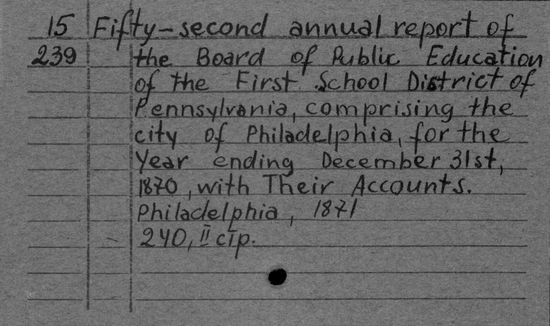 15 Fifty-second annual report of
239 the Board of Public Education
of the First School District of
Pennsylvania, comprising the
city of Philadelphia, for the
Year ending December 31st,
1870, with Their Accounts.
Philadelphia, 1871
240, II стр.